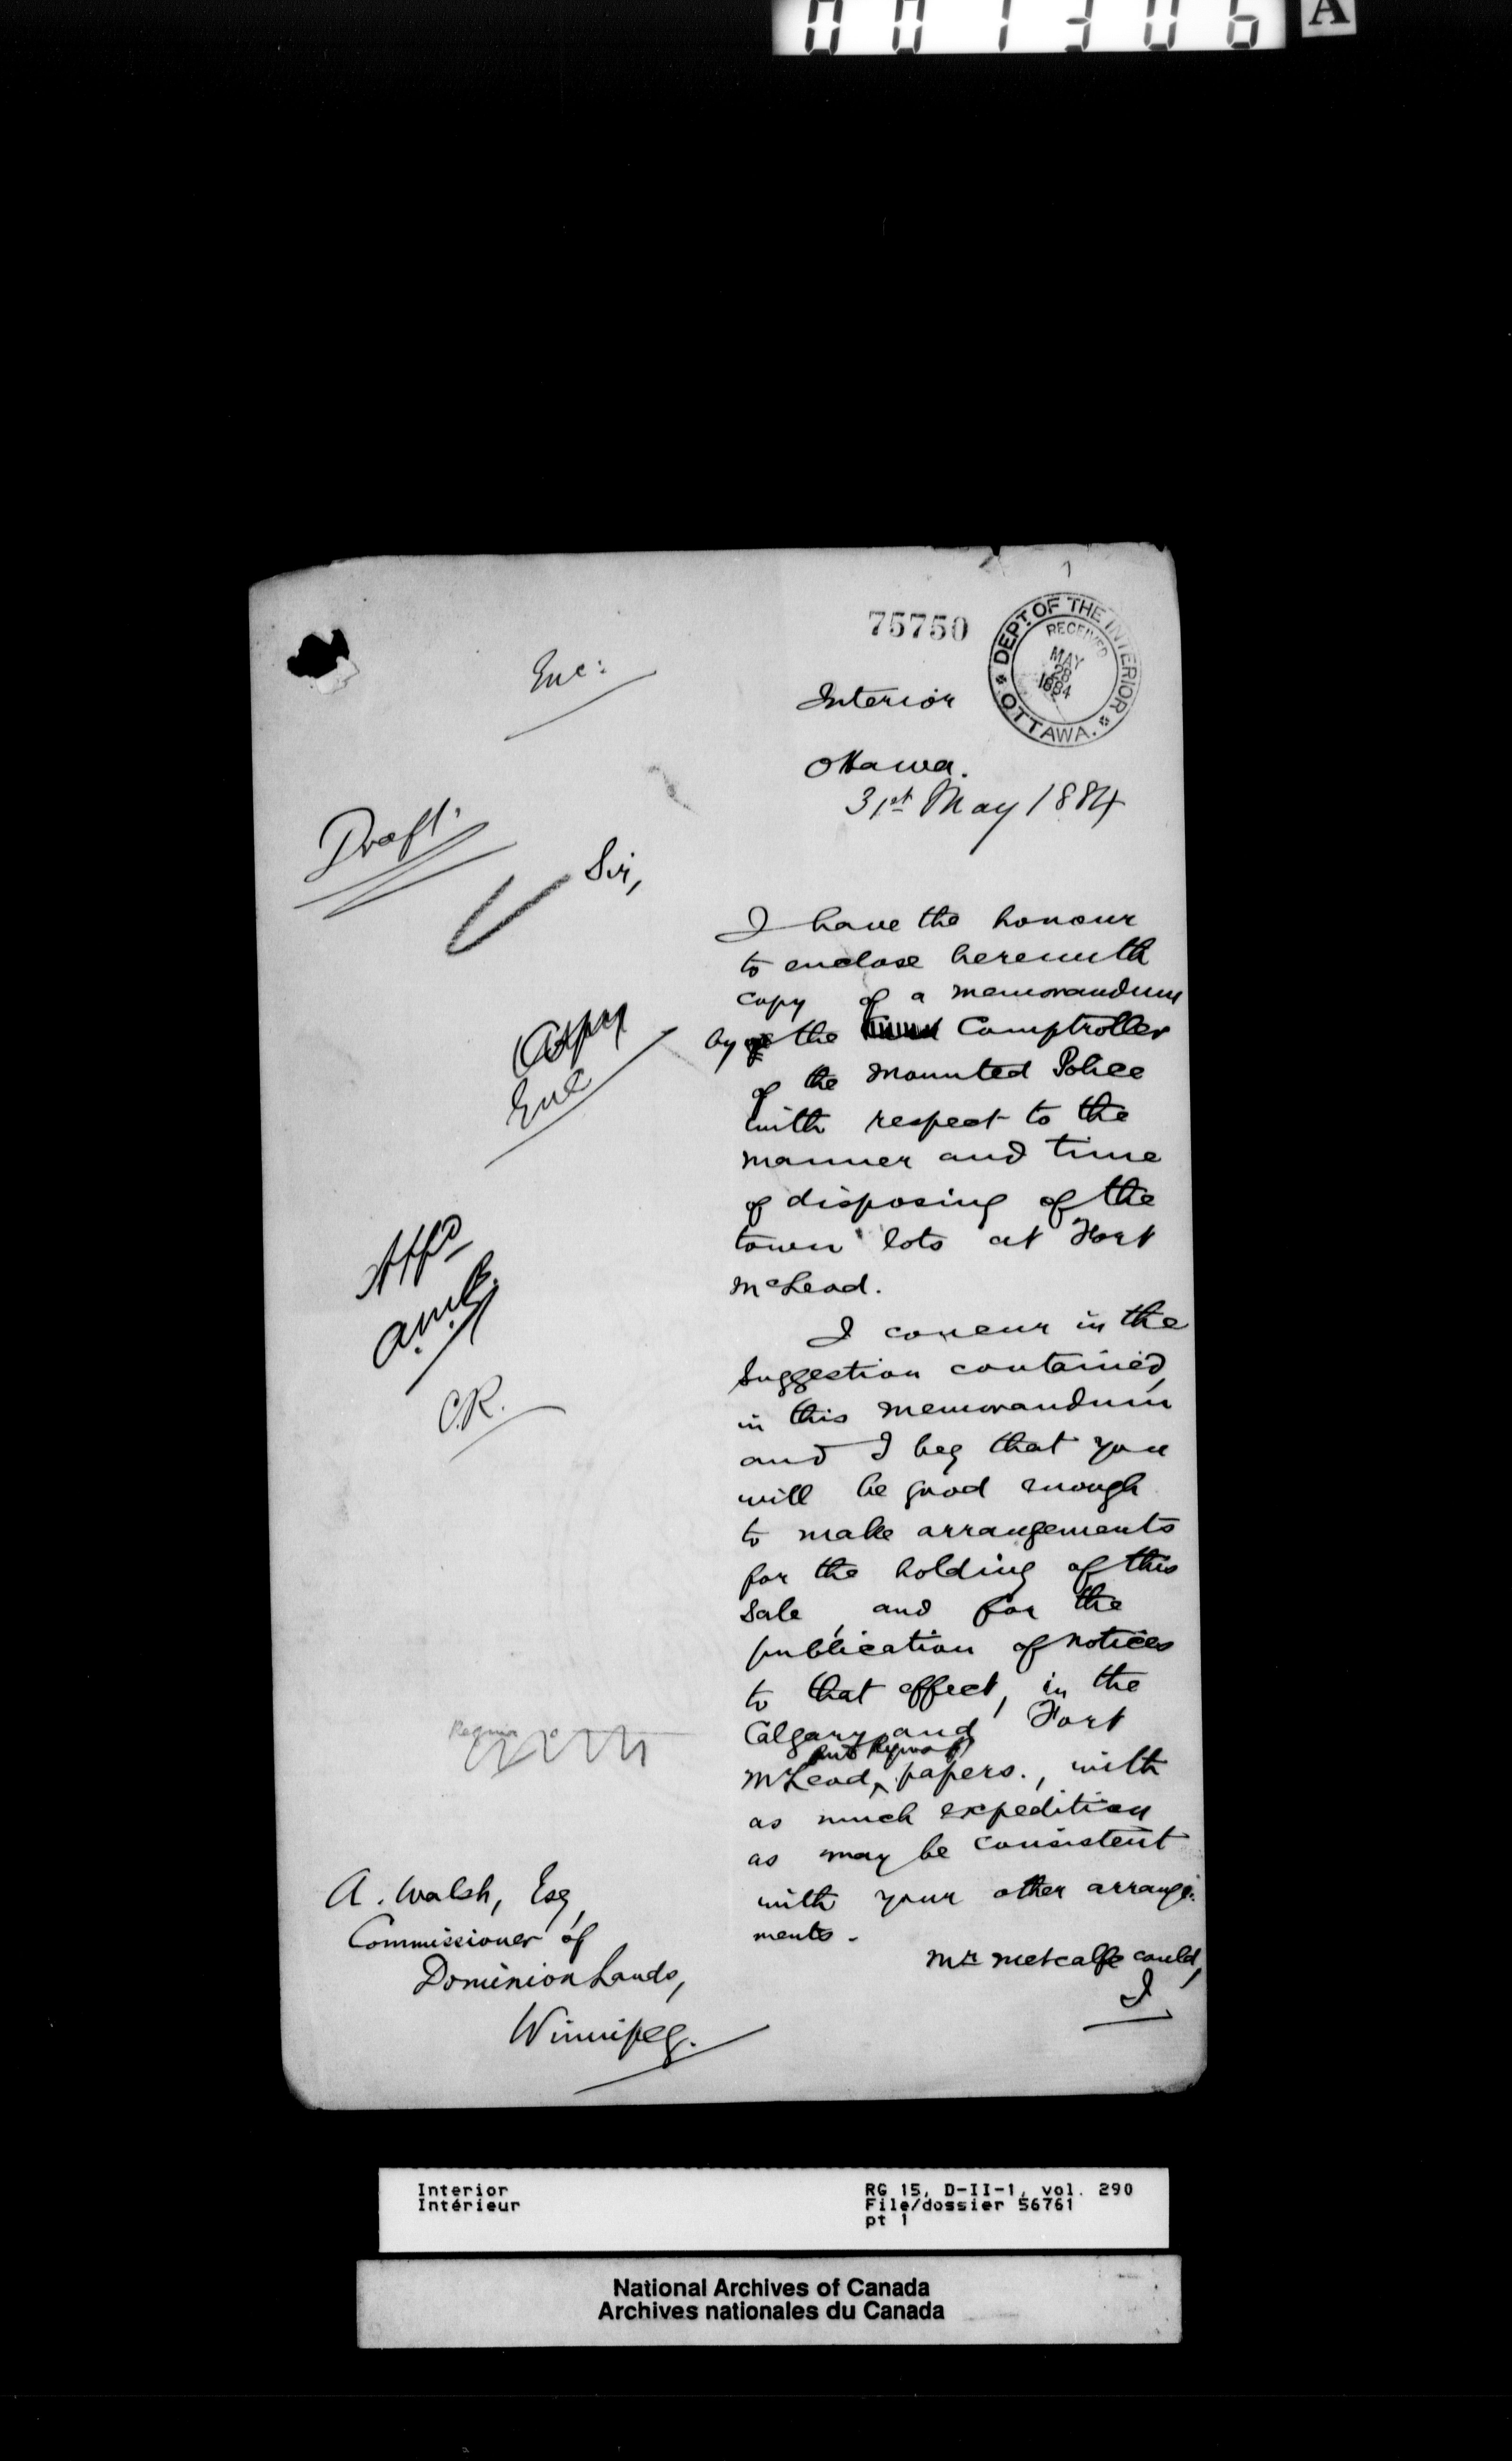 001306
A
75750
DEPT. OF THE INTERIOR
RECEIVED
MAY
28
1884
OTTAWA.
Enc:
Interior
Ottawa.
31st May 1884
Draft.
Sir,
I have the honour
to enclose herewith
copy of a memorandum
by the Comptroller
of the Mounted Police
with respect to the
manner and time
of disposing of the
town lots at Fort
McLeod.
I concur in the
suggestion contained
in this memorandum
and I beg that you
will be good enough
to make arrangements
for the holding of this
sale, and for the
publication of notices
to that effect, in the
Calgary and Fort
McLeod papers., with
as much expedition
as may be consistent
with your other arrange-
ments.
Mr Metcalfe could,
I
Copy
Enc
A.M.B.
C.R.
Regina
A. Walsh, Esq,
Commissioner of
Dominion Lands,
Winnipeg.
Interior
Intérieur
RG 15, D-II-1, vol. 290
File/dossier 56761
pt 1
National Archives of Canada
Archives nationales du Canada